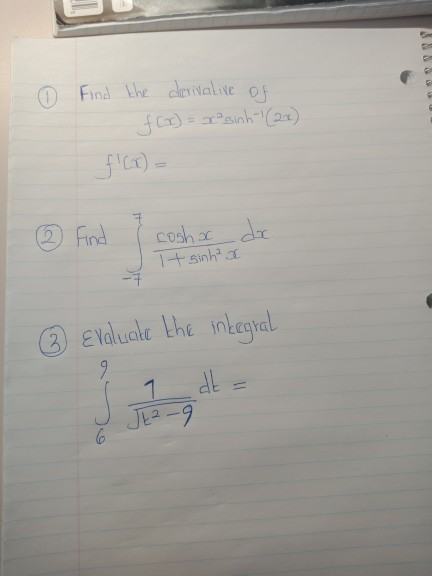 ① Find the derivative of
f(x) = x² sinh⁻¹(2x)
f'(x) =
② Find ∫₋₇⁷ cosh x / (1 + sinh² x) dx
③ Evaluate the integral
∫₆⁹ 1 / √(t² - 9) dt =